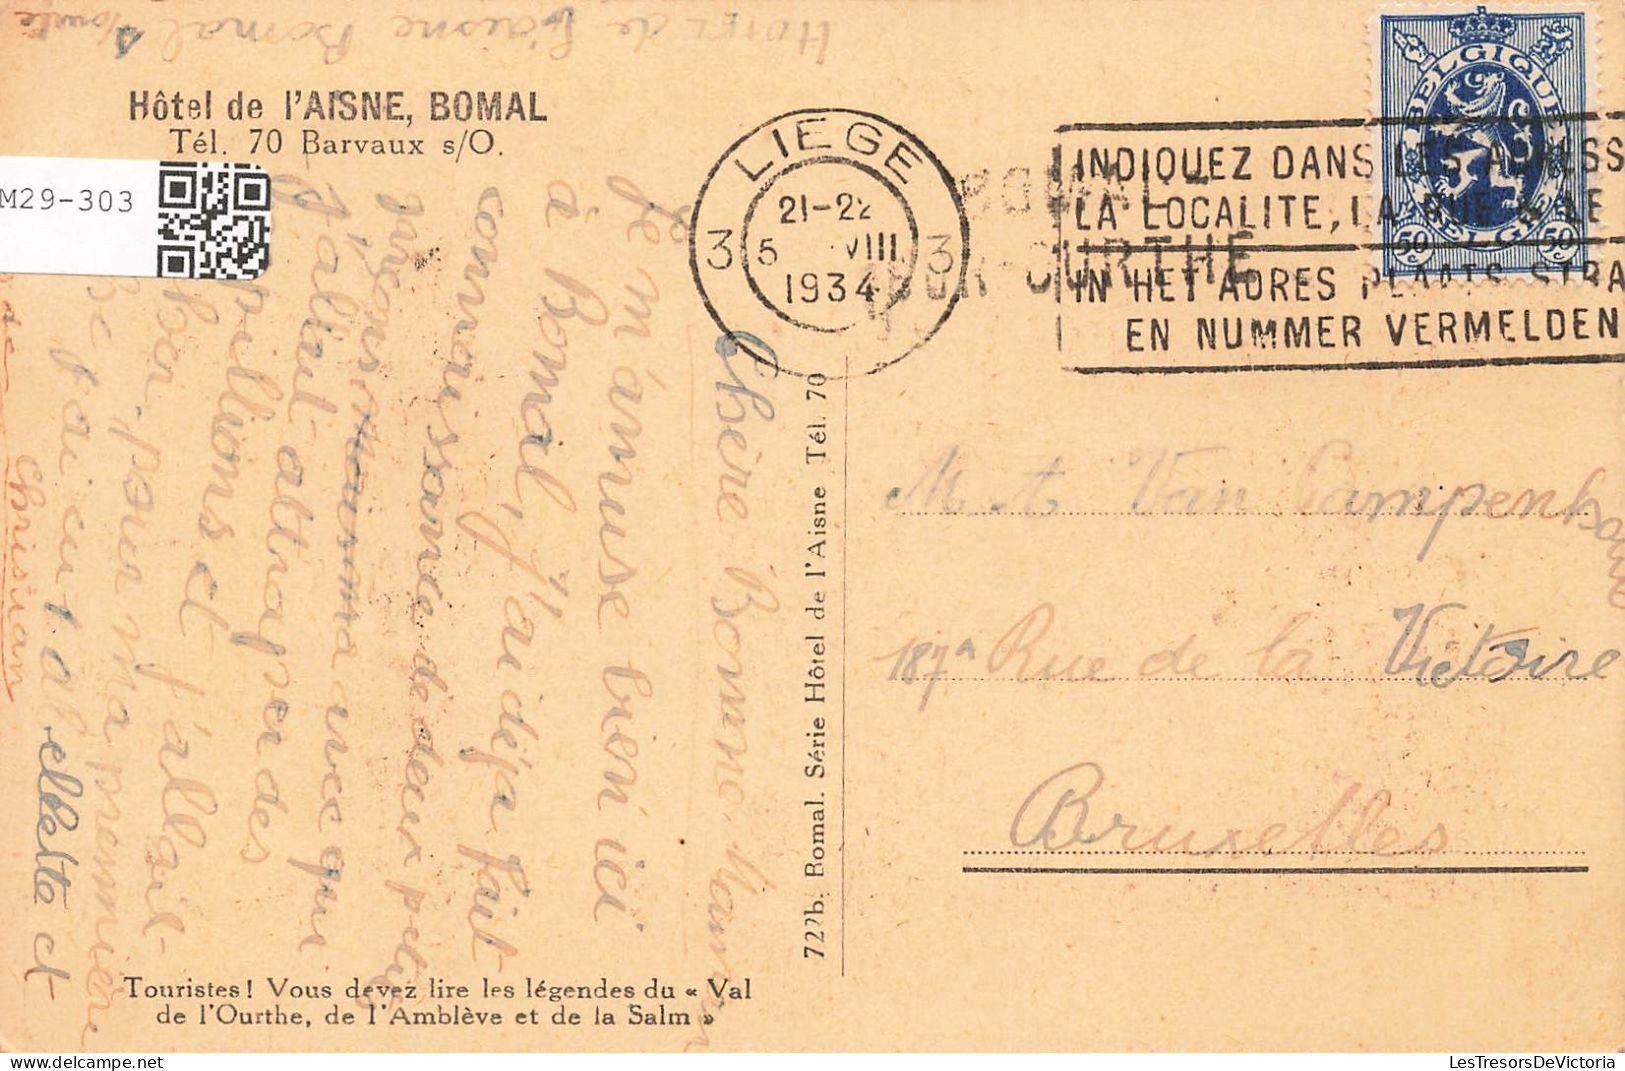 Hôtel de l'Aisne Bomal s/Ourte
Hôtel de l'AISNE, BOMAL
Tél. 70 Barvaux s/O.
M29-303
LIEGE
21-22
3 5 VIII 3
1934
BOMAL
SUR-OURTHE
INDIQUEZ DANS LES ADRESS
LA LOCALITE, LA RUE & LE
IN HET ADRES PLAATS STRA
EN NUMMER VERMELDEN
BELGIQUE
BELGIE
50c 50c
Chère Bonne-Maman
Je m'amuse bien ici
à Bomal, j'ai déjà fait
connaissance de deux petits
garçons
j'allait attraper des
papillons et
j'allait
pour ma première
j'ai eut
Christian
722b. Bomal. Série Hôtel de l'Aisne Tél. 70
M. A. Van Campenhout
187A Rue de la Victoire
Bruxelles
Touristes! Vous devez lire les légendes du « Val
de l'Ourthe, de l'Amblève et de la Salm »
LesTresorsDeVictoria.com